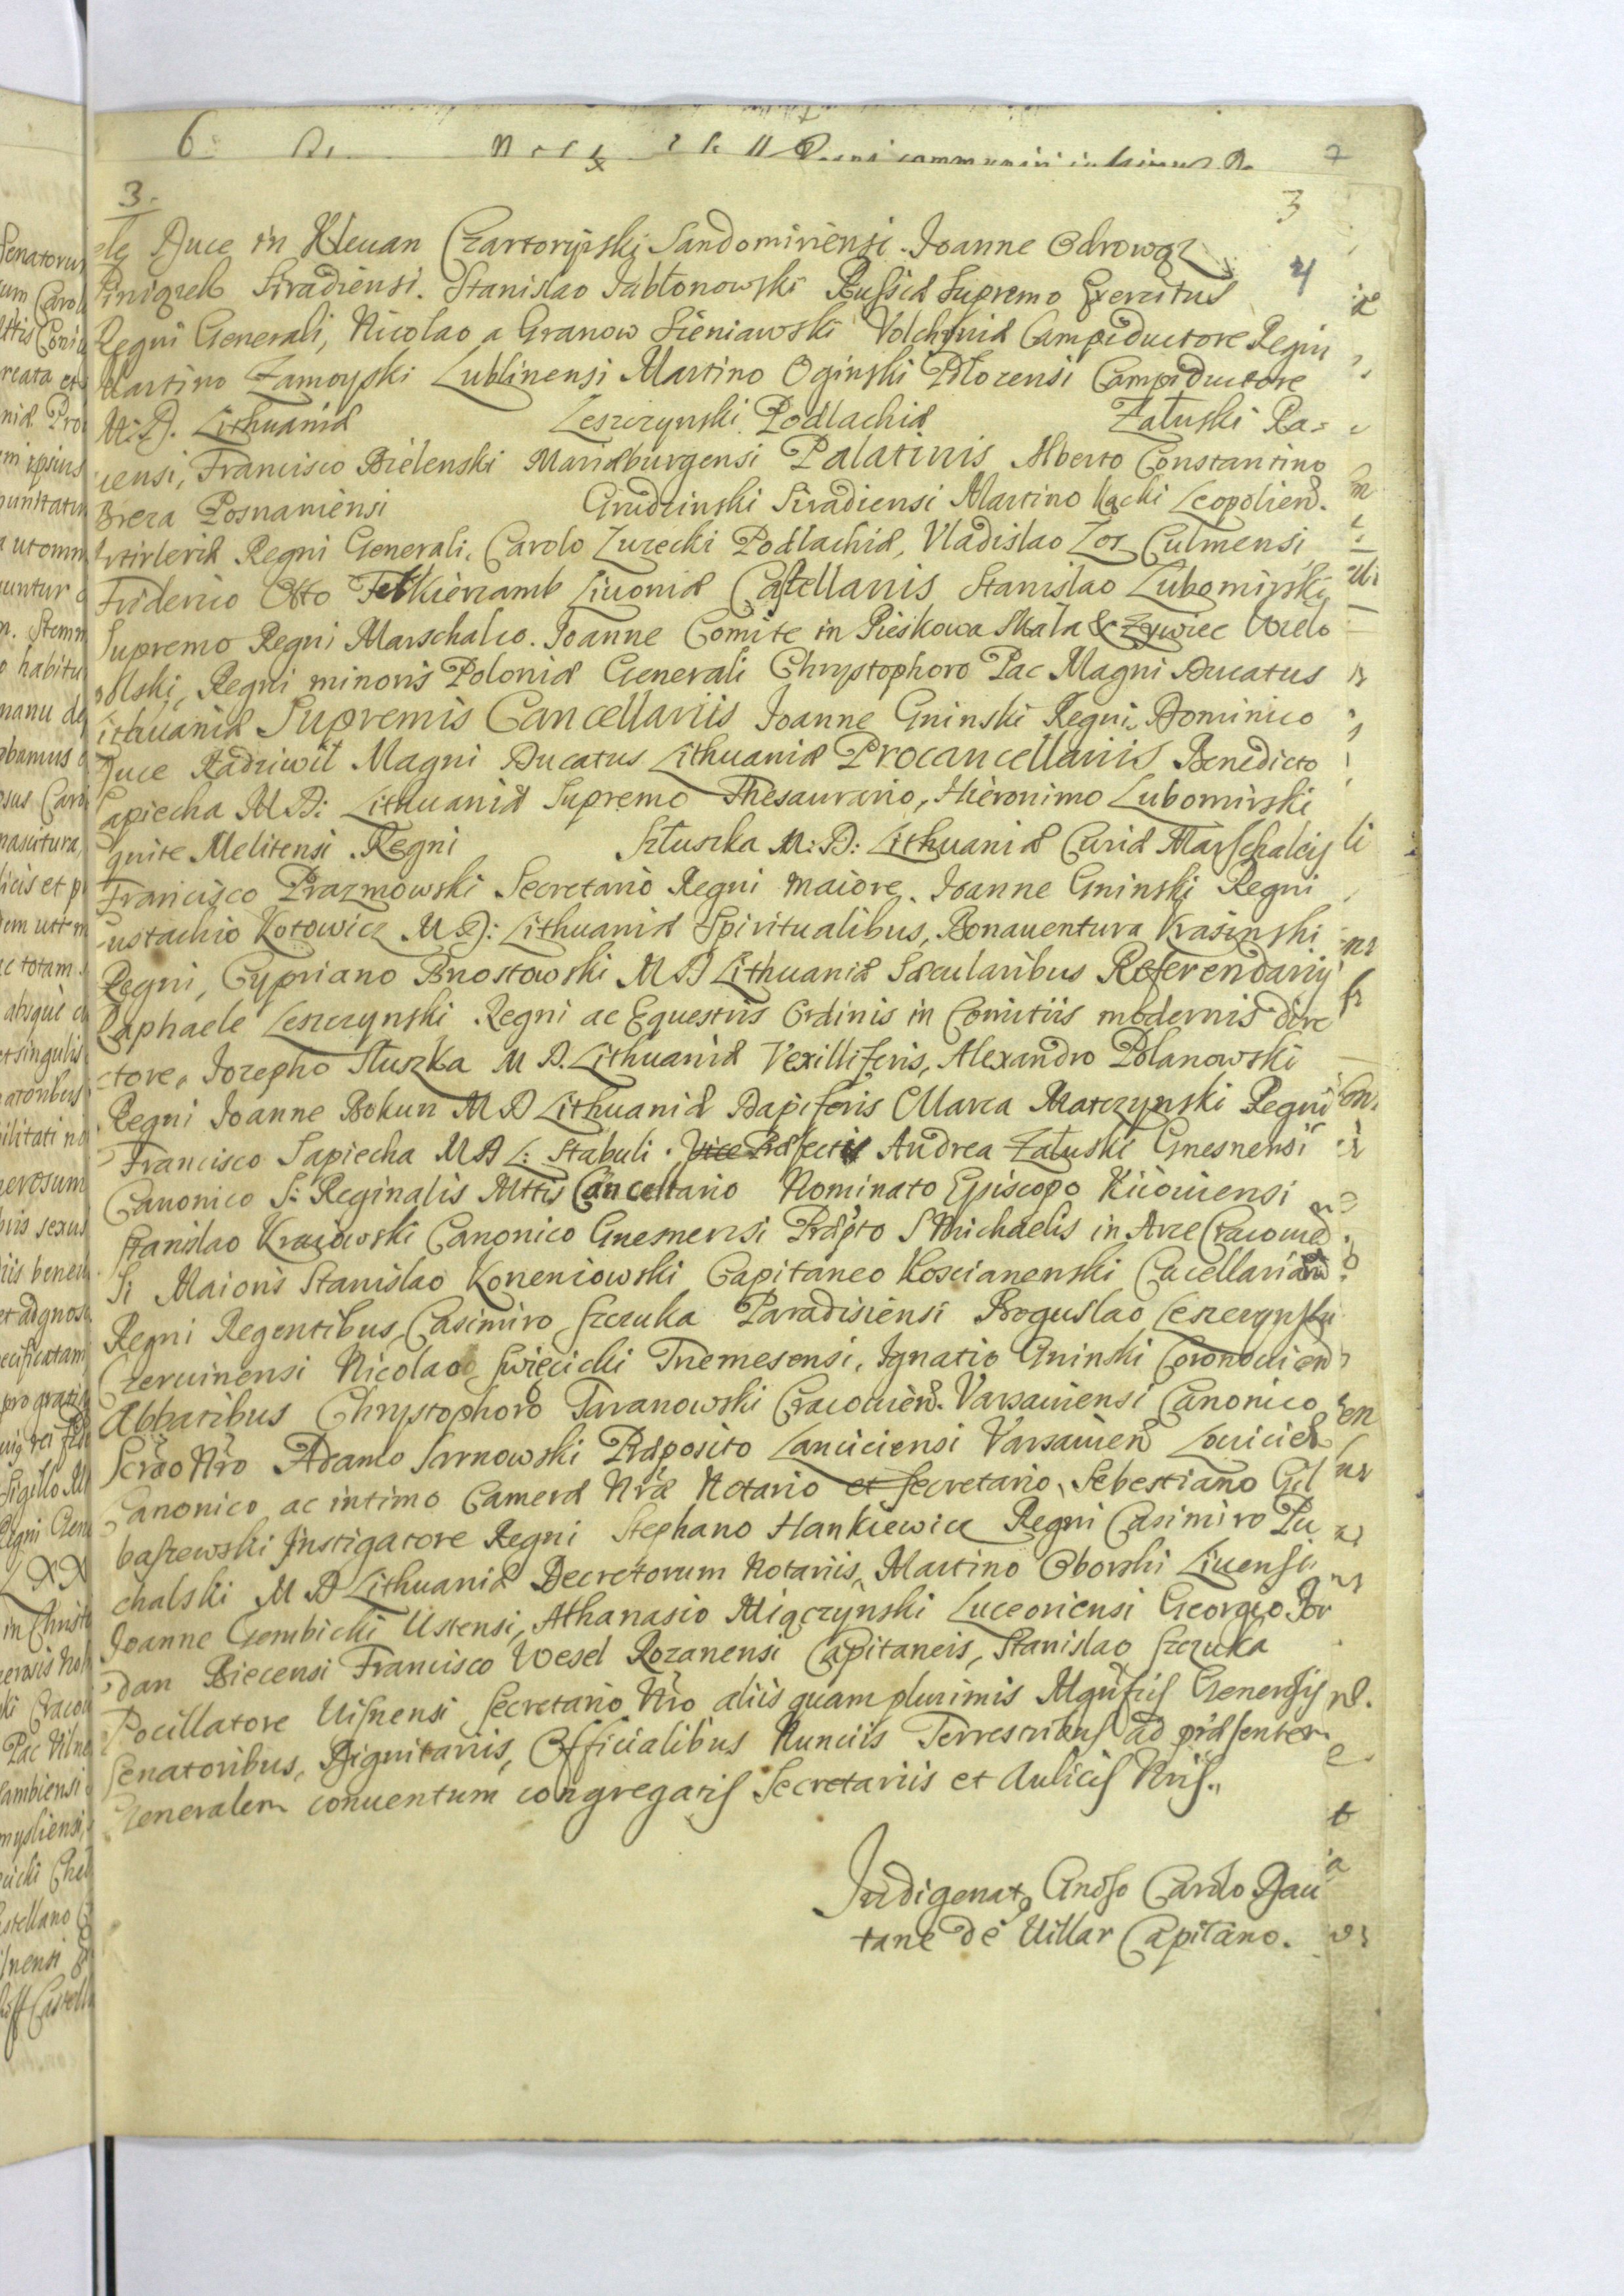 3. 3
4
ele Duce in Klewan Czartoryiski Sandomiriensi. Joanne Odrowąz
Piniązek Siradiensi. Stanislao Jabłonowski Russiæ Supremo Exercitus
Regni Generali, Nicolao a Granow Sieniawski Volchyniæ Campiductore Regni
Martino Zamoyski Lublinensi Martino Oginski Plocensi Campiductore
M: D. Lithuaniæ Leszczynski Podlachiæ Załuski Ra=
vensi, Francisco Bielenski Mariæburgensi Palatinis Alberto Constantino
Breza Posnaniensi Grudzinski Siradiensi Martino Kącki Leopolien.
Artirleriæ Regni Generali, Carolo Zurecki Podlachiæ, Vladislao Łos Culmensi
Friderico Otto Felkierzamb Livoniæ Castellanis Stanislao Lubomirski
Supremo Regni Marschalco. Joanne Comite in Pieskowa Skała & Zywiec Wielo
polski, Regni minoris Poloniæ Generali Chrystophoro Pac Magni Ducatus
Lithuaniæ Supremis Cancellariis Joanne Gninski Regni, Dominico
Duce Radziwił Magni Ducatus Lithuaniæ Procancellariis Benedicto
Sapiecha M D: Lithuaniæ Supremo Thesaurario, Hieronimo Lubomirski
Equite Melitensi Regni Słuszka M: D: Lithuaniæ Curiæ Marschalcis
Francisco Prazmowski Secretario Regni maiore. Joanne Gninski Regni
Eustachio Kotowicz M D: Lithuaniæ Spiritualibus, Bonauentura Krasinski
Regni, Cypriano Brostowski M D Lithuaniæ Sæcularibus Referendariy
Raphaele Leszczynski Regni ac Equestris Ordinis in Comitiis modernis dire
ctore, Jozepho Słuszka M D. Lithuaniæ Vexilliferis, Alexandro Polanowski
Regni Joanne Bokun M D Lithuaniæ Dapiferis Marca Matczynski Regni
Francisco Sapiecha M D L: Stabuli. Præfectis Andrea Załuski Gnesnensi
Canonico S: Reginalis Mttis Cancellario Nominato Episcopo Kiiouiensi
Stanislao Krajowski Canonico Gnesnensi Præpto S Michaelis in Arce Cracouien
Si Maioris Stanislao Konieniowski Capitaneo Koscianenski Cacellariaru
Regni Regentibus, Casimiro Szczuka Paradisiensi Boguslao Leszczynski
Czerwinensi Nicolao Swięcicki Tremesensi, Ignatio Gninski Coronouien
Abbatibus Chrystophoro Taranowski Cracouien. Varsauiensi Canonico
Scrão Nrõ Adamo Sarnowski Præposito Lanciciensi Varsauien Louicien
Canonico ac intimo Cameræ Nræ Notario et Secretario, Sebestiano Gil
baszewski Instigatore Regni Stephano Hankiewicz Regni Casimiro Pu
chalski M D Lithuaniæ Decretorum Notariis, Martino Oborski Liuensi
Joanne Gembicki Ustensi, Athanasio Miączynski Luceoriensi Georgio Jor
dan Biecensi Francisco Wesel Rozanensi Capitaneis, Stanislao Szczuka
Pocillatore Uisnensi Secretario Nro aliis quam plurimis Mgnficis Generosis
Senatoribus, Dignitariis, Officialibus Nunciis Terrestribus ad præsentem
Generalem conuentum congregatis Secretariis et Aulicis Nris.
Indigenat9 Gnoso Carolo Gau
tane de Uillar Capitano.